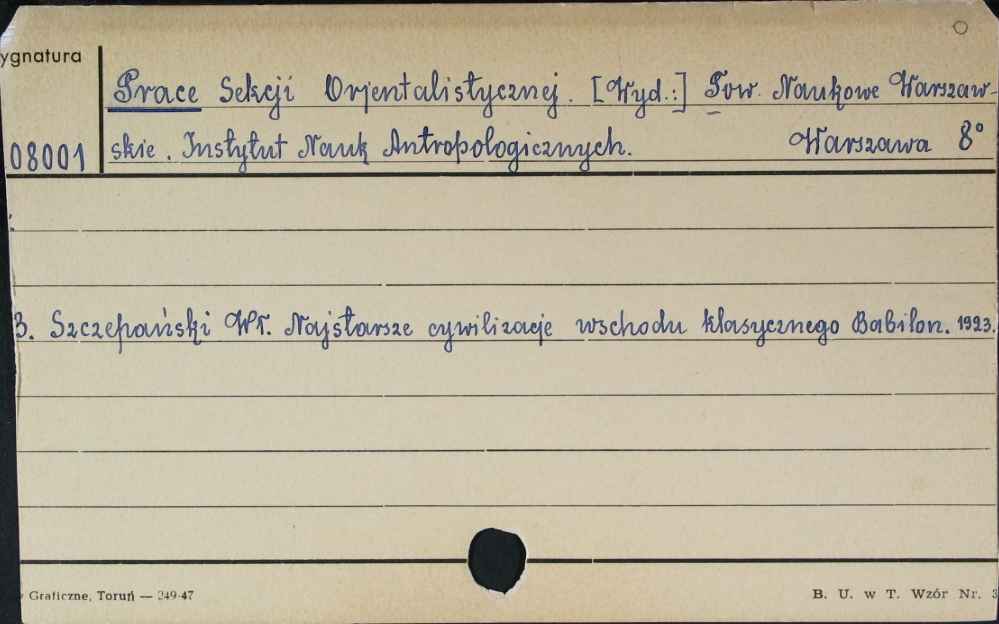 ygnatura
Prace Sekcji Orjentalistycznej. [Wyd.:] Tow. Naukowe Warszaw-
08001 skie. Instytut Nauk Antropologicznych. Warszawa 8°
3. Szczepański Wł. Najstarsze cywilizacje wschodu klasycznego Babilon. 1923.
Graficzne, Toruń — 249-47 B. U. w T. Wzór Nr. 3